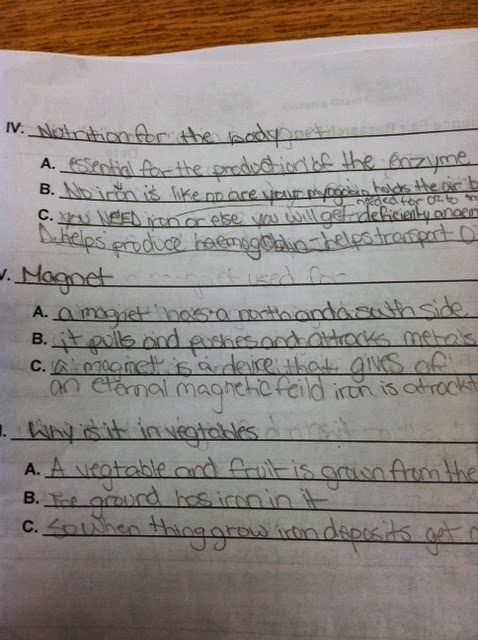 IV. Nutrition for the body
A. essential for the production of the enzyme
B. No iron is like no are your myogobin holds the air b
needed for O2 to
C. you NEED iron or else you will get deficienty anaem
D. helps produce haemoglobin - helps transport O
V. Magnet
A. a magnet has a north and a south side
B. it pulls and pushes and attracks metals
C. a magnet is a device that gives of
an eternal magnetic feild iron is atrackt
I. Why is it in vegtables
A. A vegtable and fruit is grown from the
B. The ground has iron in it
C. So when thing grow iron deposits get